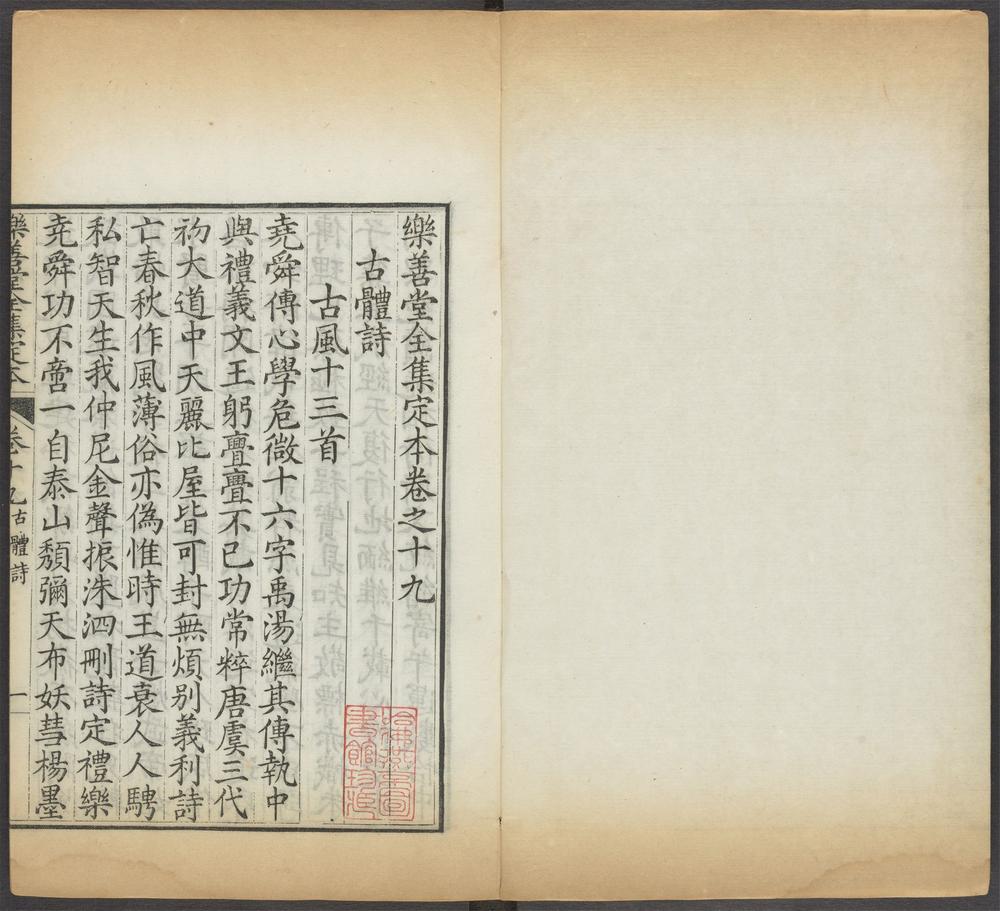 樂善堂全集定本卷之十九
古體詩
古風十三首
堯舜傳心學危微十六字禹湯繼其傳執中
與禮義文王躬亹亹不已功常粹唐虞三代
礽大道中天麗比屋皆可封無煩別義利詩
亡春秋作風薄俗亦偽惟時王道衰人人騁
私智天生我仲尼金聲振洙泗刪詩定禮樂
堯舜功不啻一自泰山頹彌天布妖彗楊墨
樂善堂全集定本
卷十九古體詩
一
哈佛燕京圖
書館珍藏